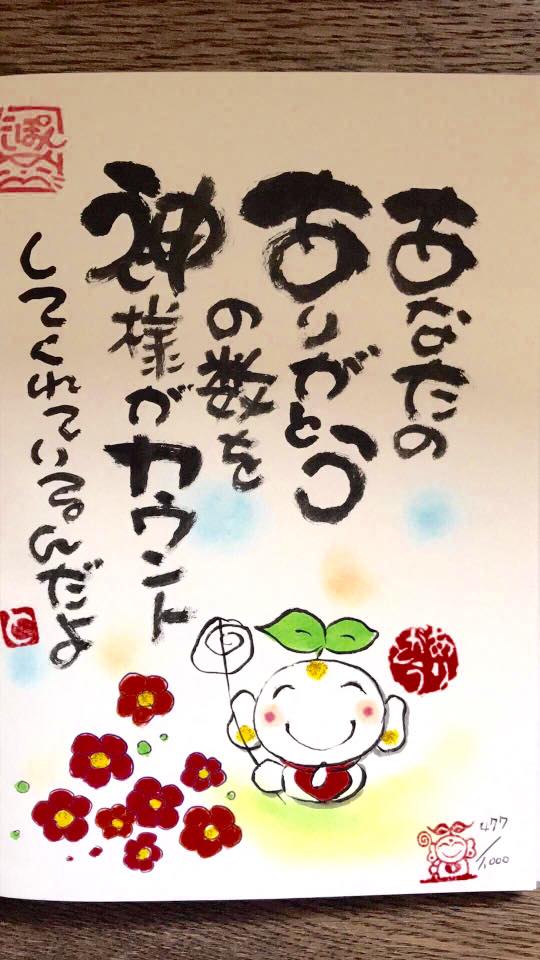 あなたの
ありがとう
の数を
神様がカウント
してくれているんだよ
ありがとう
477/1,000